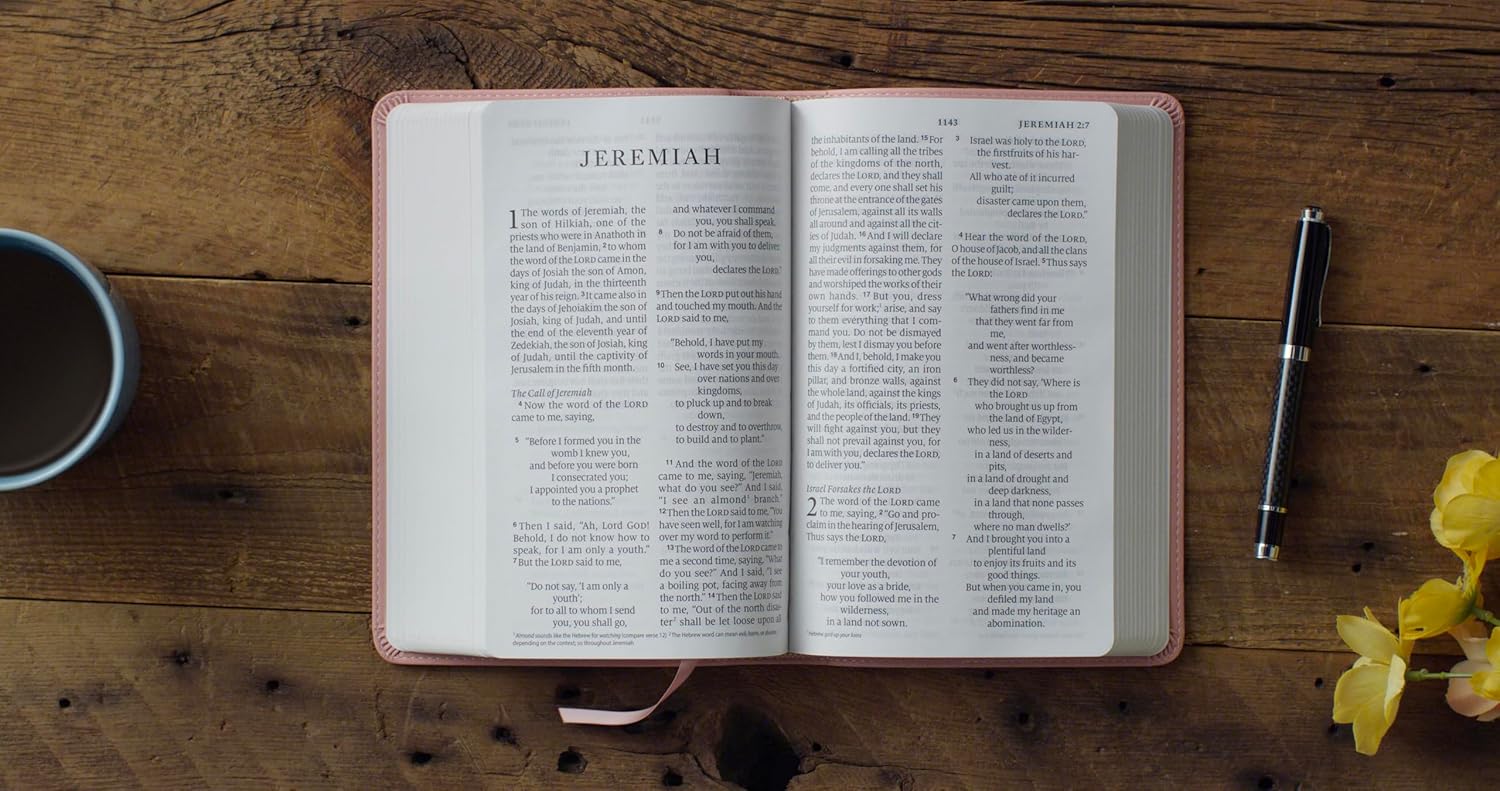 JEREMIAH
1 The words of Jeremiah, the
son of Hilkiah, one of the
priests who were in Anathoth in
the land of Benjamin, 2 to whom
the word of the LORD came in the
days of Josiah the son of Amon,
king of Judah, in the thirteenth
year of his reign. 3 It came also in
the days of Jehoiakim the son of
Josiah, king of Judah, and until
the end of the eleventh year of
Zedekiah, the son of Josiah, king
of Judah, until the captivity of
Jerusalem in the fifth month.
The Call of Jeremiah
4 Now the word of the LORD
came to me, saying,
5 “Before I formed you in the
womb I knew you,
and before you were born
I consecrated you;
I appointed you a prophet
to the nations.”
6 Then I said, “Ah, Lord GOD!
Behold, I do not know how to
speak, for I am only a youth.”
7 But the LORD said to me,
“Do not say, ‘I am only a
youth’;
for to all to whom I send
you, you shall go,
and whatever I command
you, you shall speak.
8 Do not be afraid of them,
for I am with you to deliver
you,
declares the LORD.”
9 Then the LORD put out his hand
and touched my mouth. And the
LORD said to me,
“Behold, I have put my
words in your mouth.
10 See, I have set you this day
over nations and over
kingdoms,
to pluck up and to break
down,
to destroy and to overthrow,
to build and to plant.”
11 And the word of the LORD
came to me, saying, “Jeremiah,
what do you see?” And I said,
“I see an almond¹ branch.”
12 Then the LORD said to me, “You
have seen well, for I am watching
over my word to perform it.”
13 The word of the LORD came to
me a second time, saying, “What
do you see?” And I said, “I see
a boiling pot, facing away from
the north.” 14 Then the LORD said
to me, “Out of the north disas-
ter² shall be let loose upon all
¹ Almond sounds like the Hebrew for watching (compare verse 12) ² The Hebrew word can mean evil, harm, or disaster,
depending on the context; so throughout Jeremiah
1143
JEREMIAH 2:7
the inhabitants of the land. 15 For
behold, I am calling all the tribes
of the kingdoms of the north,
declares the LORD, and they shall
come, and every one shall set his
throne at the entrance of the gates
of Jerusalem, against all its walls
all around and against all the cit-
ies of Judah. 16 And I will declare
my judgments against them, for
all their evil in forsaking me. They
have made offerings to other gods
and worshiped the works of their
own hands. 17 But you, dress
yourself for work;¹ arise, and say
to them everything that I com-
mand you. Do not be dismayed
by them, lest I dismay you before
them. 18 And I, behold, I make you
this day a fortified city, an iron
pillar, and bronze walls, against
the whole land, against the kings
of Judah, its officials, its priests,
and the people of the land. 19 They
will fight against you, but they
shall not prevail against you, for
I am with you, declares the LORD,
to deliver you.”
Israel Forsakes the LORD
2 The word of the LORD came
to me, saying, 2 “Go and pro-
claim in the hearing of Jerusalem,
Thus says the LORD,
“I remember the devotion of
your youth,
your love as a bride,
how you followed me in the
wilderness,
in a land not sown.
¹ Hebrew gird up your loins
3 Israel was holy to the LORD,
the firstfruits of his har-
vest.
All who ate of it incurred
guilt;
disaster came upon them,
declares the LORD.”
4 Hear the word of the LORD,
O house of Jacob, and all the clans
of the house of Israel. 5 Thus says
the LORD:
“What wrong did your
fathers find in me
that they went far from
me,
and went after worthless-
ness, and became
worthless?
6 They did not say, ‘Where is
the LORD
who brought us up from
the land of Egypt,
who led us in the wilder-
ness,
in a land of deserts and
pits,
in a land of drought and
deep darkness,
in a land that none passes
through,
where no man dwells?’
7 And I brought you into a
plentiful land
to enjoy its fruits and its
good things.
But when you came in, you
defiled my land
and made my heritage an
abomination.